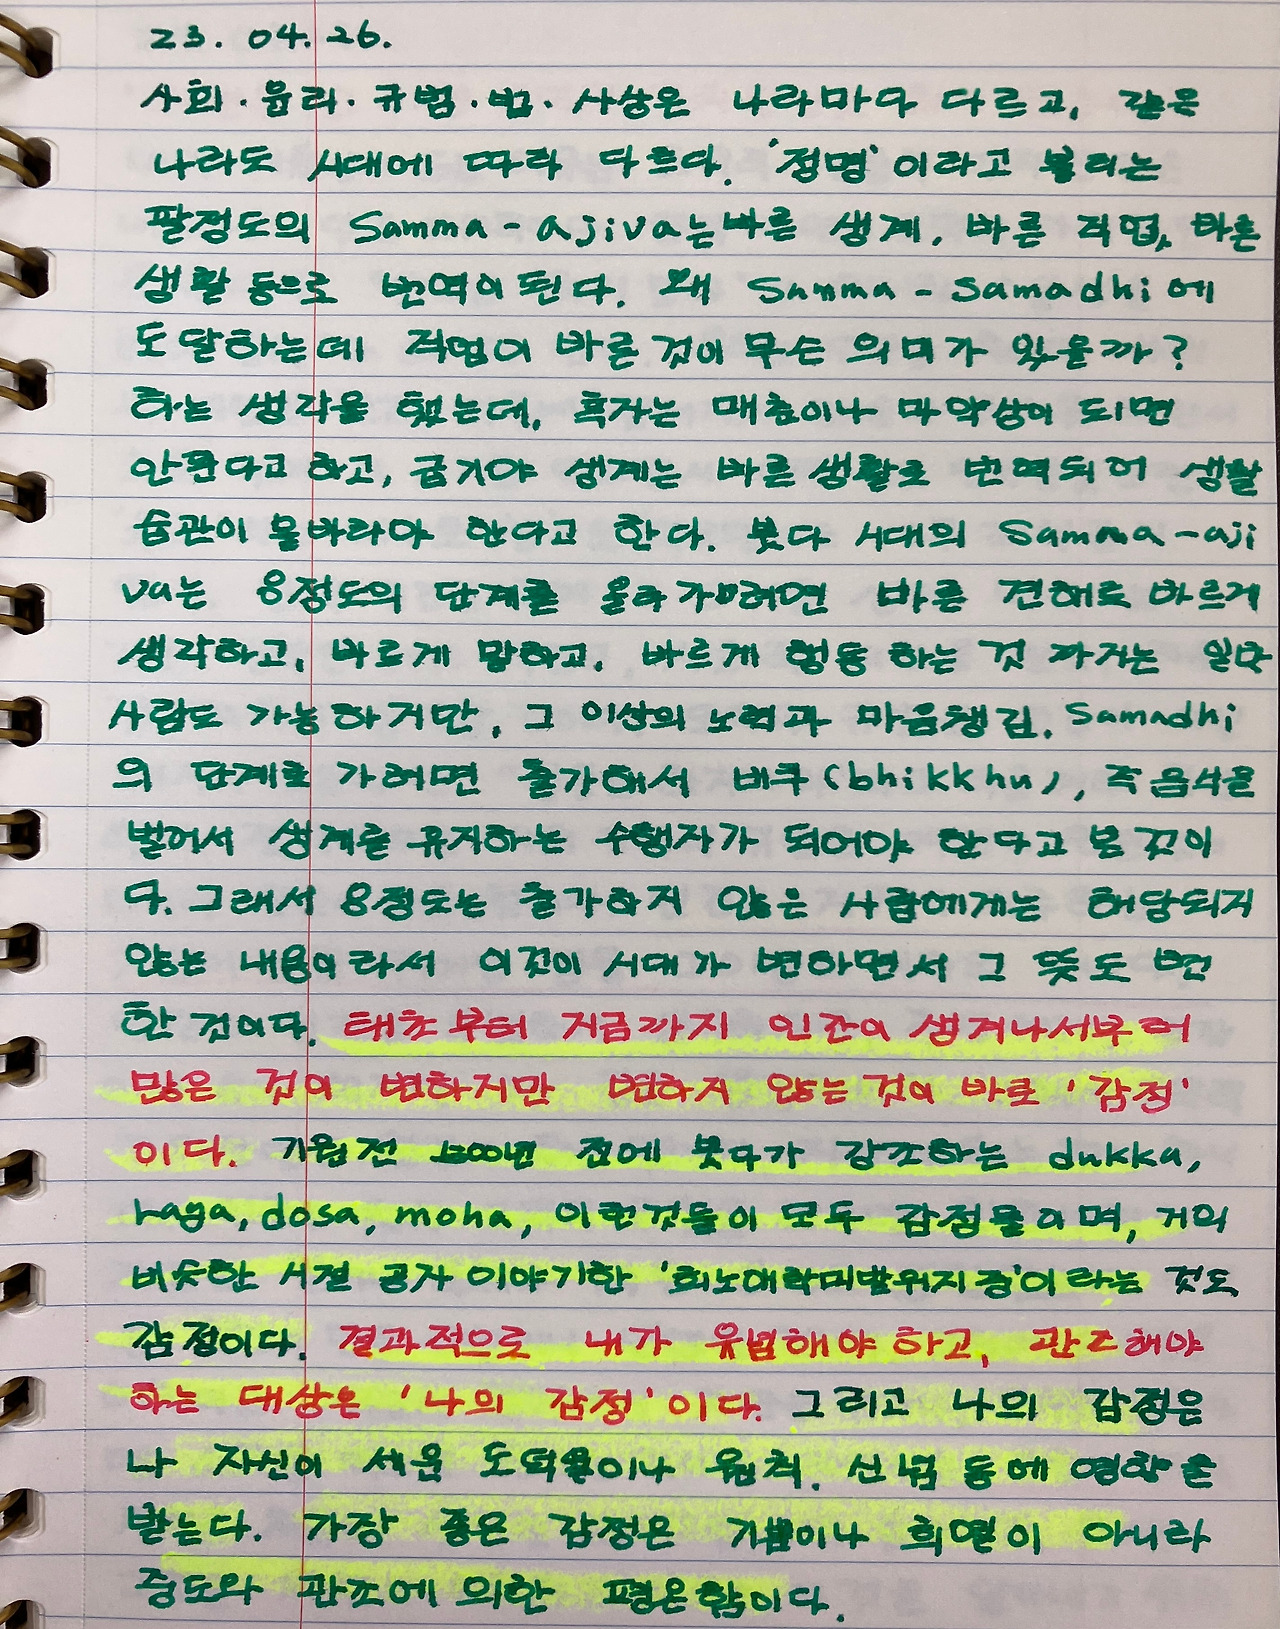 23. 04. 26.
사회·윤리·규범·법·사상은 나라마다 다르고, 같은
나라도 시대에 따라 다르다. '정명'이라고 불리는
팔정도의 Samma-ajiva는 바른 생계, 바른 직업, 바른
생활 등으로 번역이 된다. 왜 Samma-samadhi에
도달하는데 직업이 바른 것이 무슨 의미가 있을까?
하는 생각을 했는데, 혹자는 매춘이나 마약상이 되면
안된다고 하고, 급기야 생계는 바른 생활로 번역되어 생활
습관이 올바라야 한다고 한다. 붓다 시대의 Samma-aji
va는 8정도의 단계를 올라가려면 바른 견해로 바르게
생각하고, 바르게 말하고, 바르게 행동 하는 것 까지는 일반
사람도 가능하지만, 그 이상의 노력과 마음챙김, Samadhi
의 단계로 가려면 출가해서 비구(bhikkhu), 즉 음식을
빌어서 생계를 유지하는 수행자가 되어야 한다고 본 것이
다. 그래서 8정도는 출가하지 않은 사람에게는 해당되지
않는 내용이라서 이것이 시대가 변하면서 그 뜻도 변
한 것이다. 태초부터 지금까지 인간이 생겨나서부터
많은 것이 변하지만 변하지 않는 것이 바로 '감정'
이다. 기원전 1200년 전에 붓다가 강조하는 dukka,
raga, dosa, moha, 이런것들이 모두 감정들이며, 거의
비슷한 시절 공자 이야기한 '희노애락미발위지중'이라는 것도
감정이다. 결과적으로 내가 유념해야 하고, 관조해야
하는 대상은 '나의 감정'이다. 그리고 나의 감정은
나 자신이 세운 도덕율이나 원칙, 신념 등에 영향을
받는다. 가장 좋은 감정은 기쁨이나 희열이 아니라
중도와 관조에 의한 평온함이다.